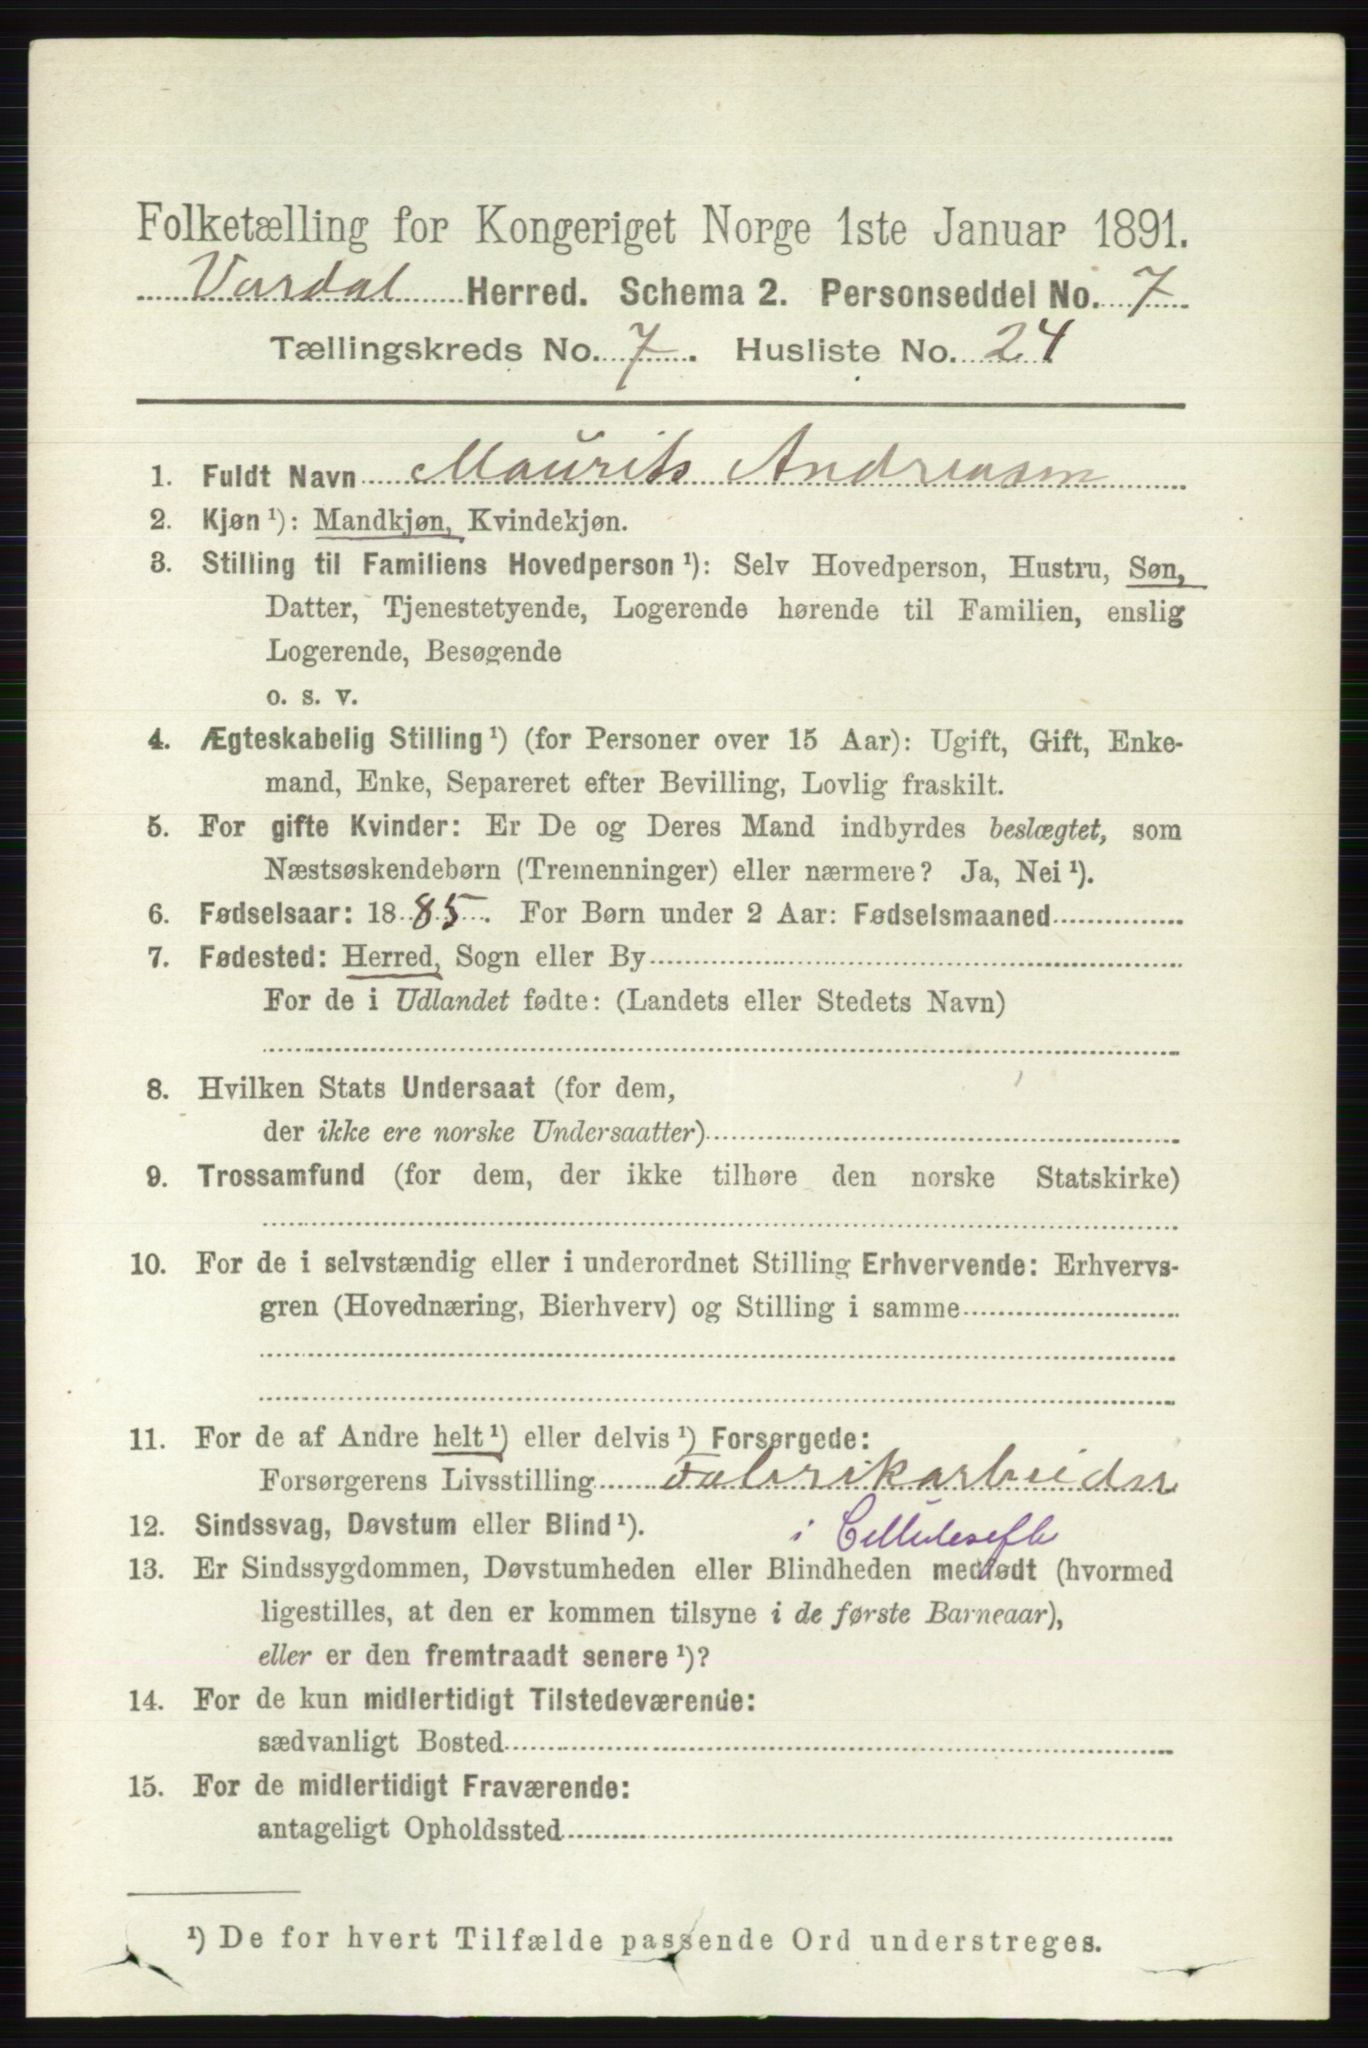 Folketælling for Kongeriget Norge 1ste Januar 1891.
Vardal Herred. Schema 2. Personseddel No. 7
Tællingskreds No. 7. Husliste No. 24
1. Fuldt Navn Maurits Andreasen
2. Kjøn ¹): Mandkjøn, Kvindekjøn.
3. Stilling til Familiens Hovedperson ¹): Selv Hovedperson, Hustru, Søn,
Datter, Tjenestetyende, Logerende hørende til Familien, enslig
Logerende, Besøgende
o. s. v.
4. Ægteskabelig Stilling ¹) (for Personer over 15 Aar): Ugift, Gift, Enke-
mand, Enke, Separeret efter Bevilling, Lovlig fraskilt.
5. For gifte Kvinder: Er De og Deres Mand indbyrdes beslægtet, som
Næstsøskendebørn (Tremenninger) eller nærmere? Ja, Nei ¹).
6. Fødselsaar: 1885. For Børn under 2 Aar: Fødselsmaaned
7. Fødested: Herred, Sogn eller By
For de i Udlandet fødte: (Landets eller Stedets Navn)
8. Hvilken Stats Undersaat (for dem,
der ikke ere norske Undersaatter)
9. Trossamfund (for dem, der ikke tilhøre den norske Statskirke)
10. For de i selvstændig eller i underordnet Stilling Erhvervende: Erhvervs-
gren (Hovednæring, Bierhverv) og Stilling i samme
11. For de af Andre helt ¹) eller delvis ¹) Forsørgede:
Forsørgerens Livsstilling Fabrikarbeider
12. Sindssvag, Døvstum eller Blind ¹). i Cellulosefb
13. Er Sindssygdommen, Døvstumheden eller Blindheden medfødt (hvormed
ligestilles, at den er kommen tilsyne i de første Barneaar),
eller er den fremtraadt senere ¹)?
14. For de kun midlertidigt Tilstedeværende:
sædvanligt Bosted
15. For de midlertidigt Fraværende:
antageligt Opholdssted
¹) De for hvert Tilfælde passende Ord understreges.